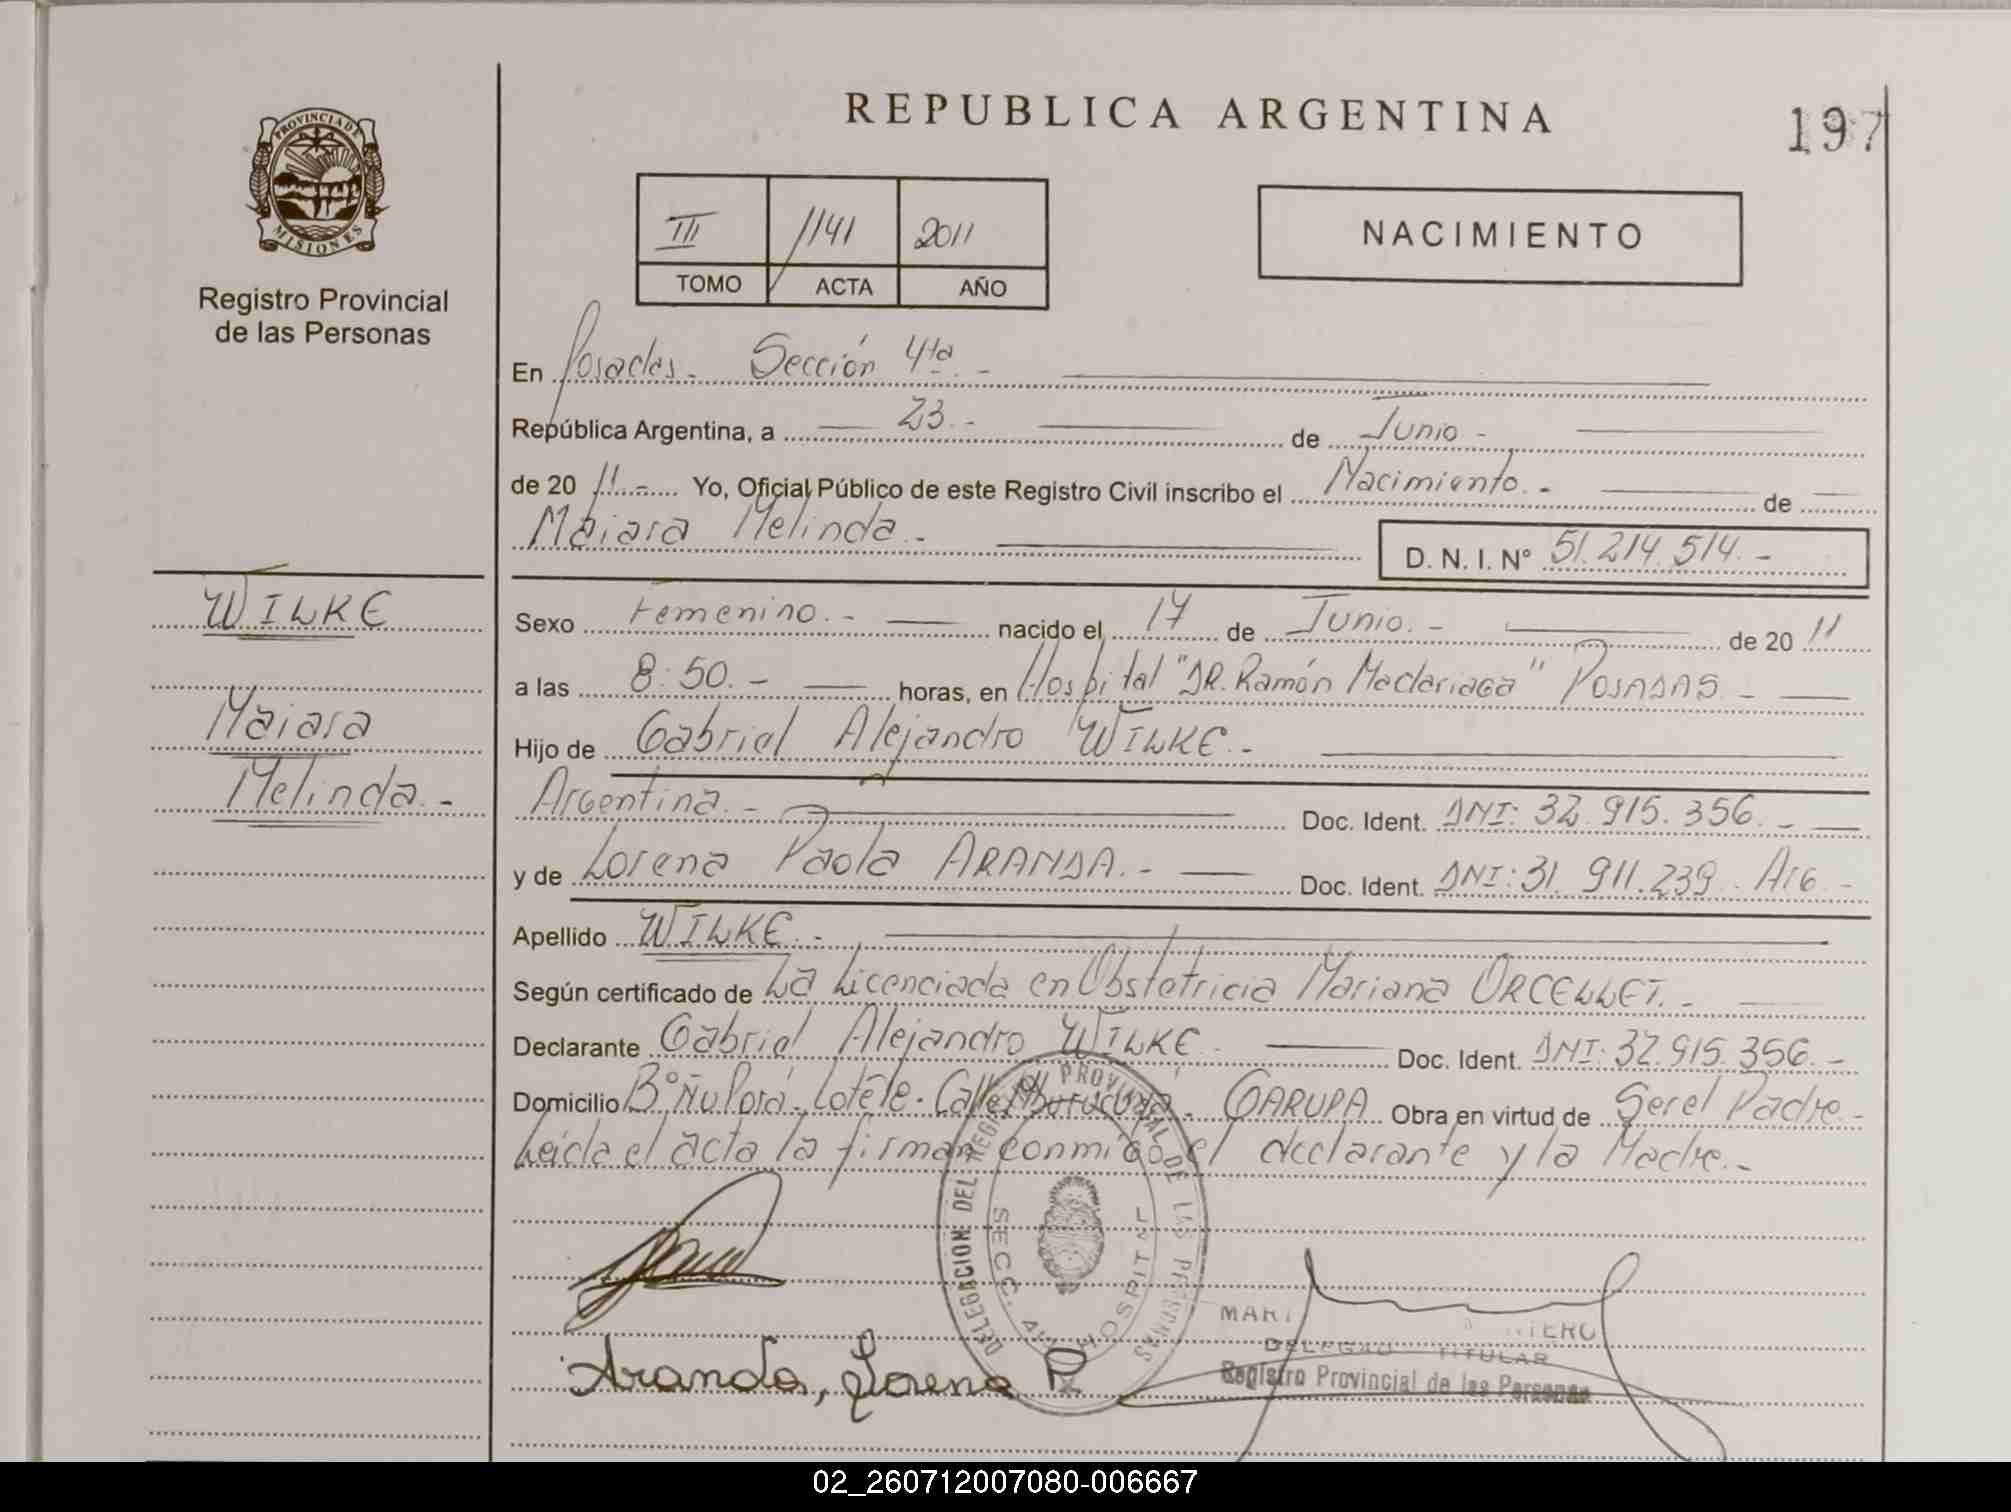 REPUBLICA ARGENTINA
197
PROVINCIA DE
MISIONES
Registro Provincial
de las Personas
III 1141 2011
TOMO ACTA AÑO
NACIMIENTO
En Posadas.- Sección 4ta.-
República Argentina, a 23.- de Junio.-
de 20 11.- Yo, Oficial Público de este Registro Civil inscribo el Nacimiento.- de
Maiara Melinda.- D. N. I. Nº 51.214.514.-
WILKE
Maiara
Melinda.-
Sexo Femenino.- nacido el 17 de Junio.- de 20 11
a las 8:50.- horas, en Hospital "DR. Ramón Madariaga" POSADAS.-
Hijo de Gabriel Alejandro WILKE.-
Argentina.- Doc. Ident. DNI: 32.915.356.-
y de Lorena Paola ARANDA.- Doc. Ident. DNI: 31.911.239. Arg.-
Apellido WILKE.-
Según certificado de La Licenciada en Obstetricia Mariana ORCELLET.-
Declarante Gabriel Alejandro WILKE.- Doc. Ident. DNI: 32.915.356.-
Domicilio Bº Ñu Porá. Calle GARUPA Obra en virtud de Ser el Padre.-
Leída el acta la firman conmigo el declarante y la Madre.-
DELEGACION DEL REGISTRO PROVINCIAL DE LAS PERSONAS
SECC. 4ta HOSPITAL
Aranda, Lorena P
DELEGADO TITULAR
Registro Provincial de las Personas
02_260712007080-006667